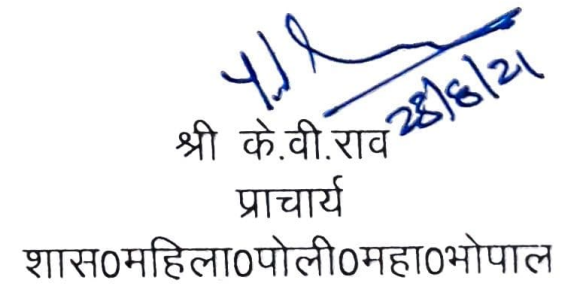 28/8/21
श्री के.वी.राव
प्राचार्य
शास0महिला0पोली0महा0भोपाल